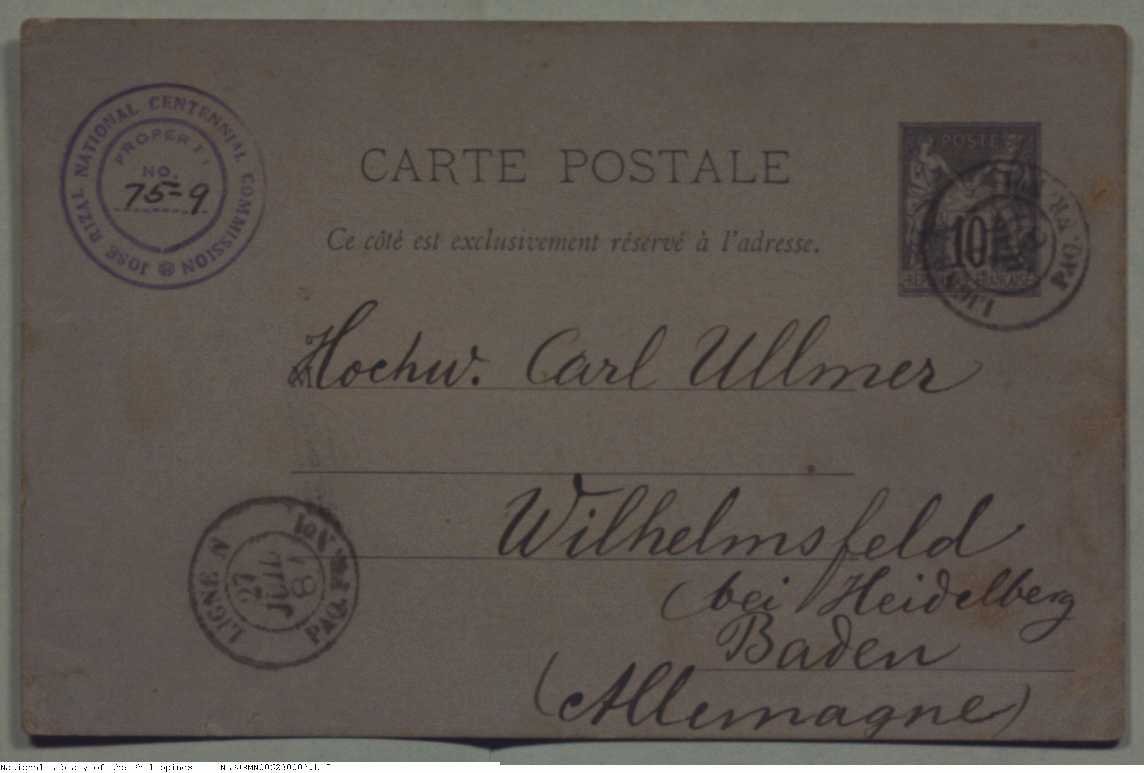 JOSE RIZAL NATIONAL CENTENNIAL COMMISSION
PROPERTY
NO.
75-9
CARTE POSTALE
Ce côté est exclusivement réservé à l'adresse.
POSTE
10
Hochw. Carl Ullmer
Wilhelmsfeld
(bei Heidelberg
Baden
(Allemagne)
LIGNE N PAQ. FR. No1
27
JUIL
87
LIGNE PAQ. FR.
National Library of the Philippines